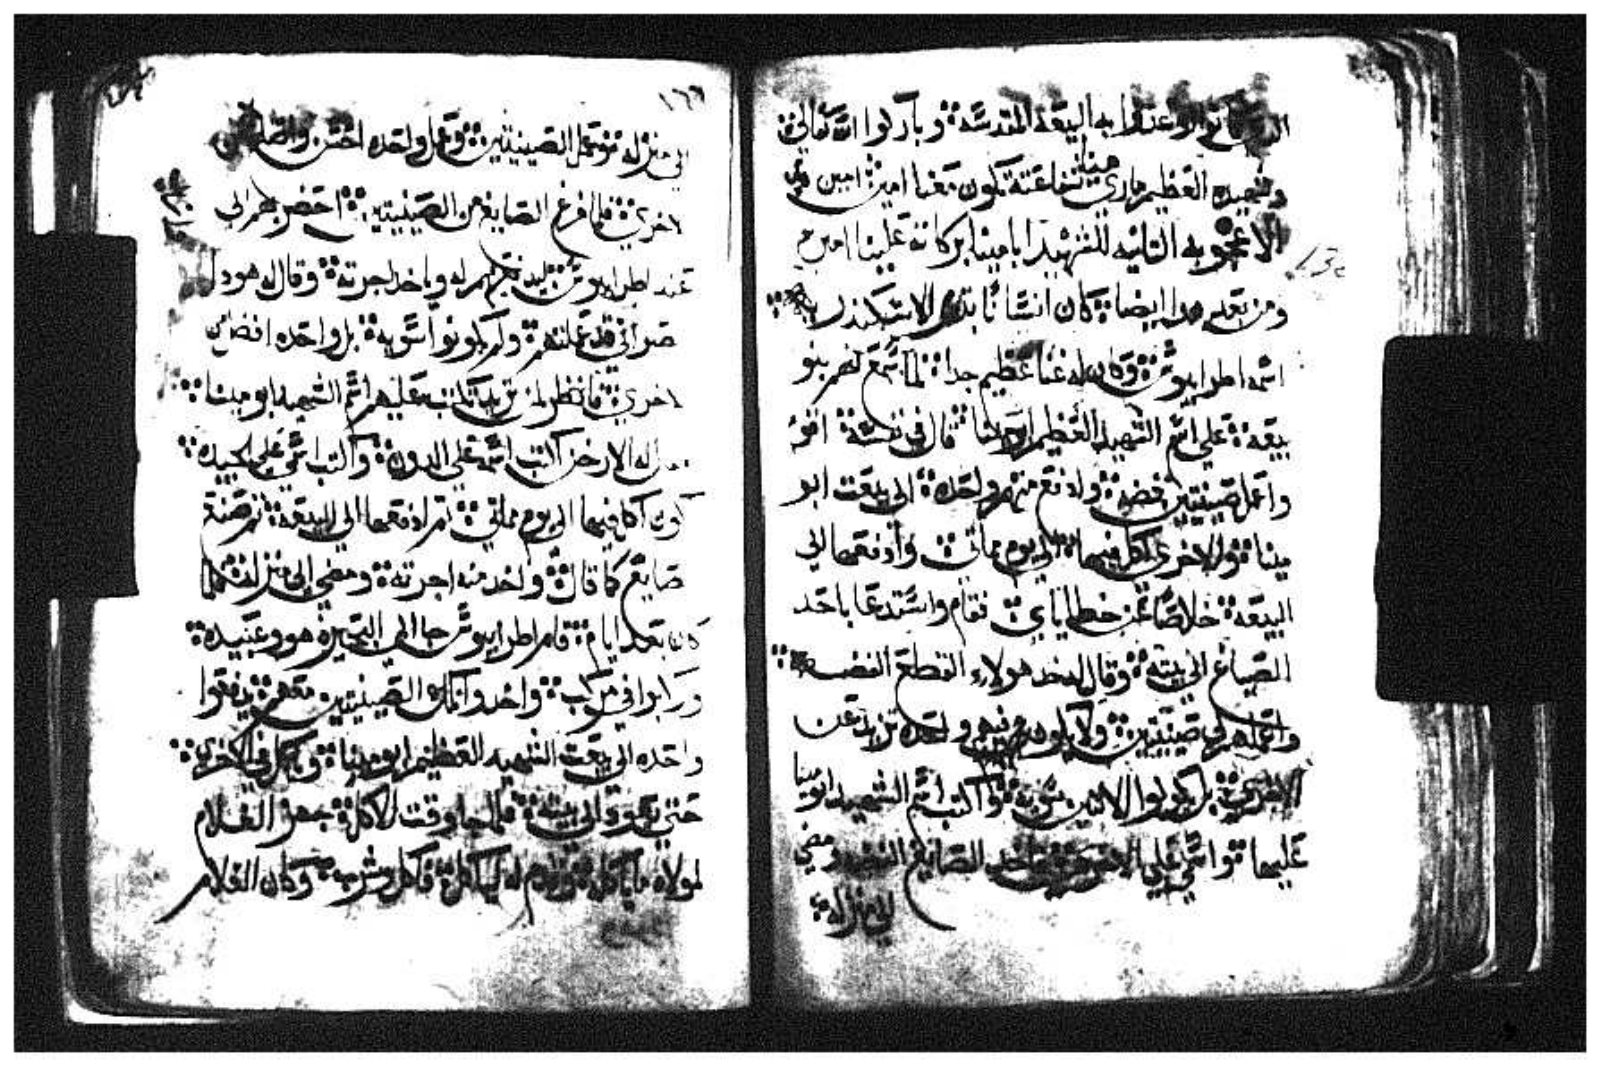 به البيعة المقدسة وباركوا الله تعالى
وشهيده العظيم ماري مينا شفاعته تكون معنا امين امين
الاعجوبه التانيه للشهيد ابا مينا بركاته علينا امين
ومن بعد هدا ايضا كان انسانا بتغر الاسكندريه
اسمه اطرابيوس وكان له غنا عظيم جدا لما سمع انهم بنو
بيعة على اسم الشهيد العظيم ابو مينا قال في نفسه اقوم
واعمل صينيتين فضه وادفع منهم واحده الى بيعت ابو
مينا والاخرى اكل فيها الى يوم مماتي وادفعها الى
البيعة خلاصا عن خطاياي فقام واستدعا باحد
الصياغ الى بيته وقال له خد هولاء القطع الفضه
واعملهم لي صينيتين ولا يكون فيهم واحده تزيد عن
الاخرى بل يكونوا الاتنين سويه واكتب اسم الشهيد ابو مينا
عليها واسمي على الاخرى فاخد الصايغ الفضه ومضى
الى منزله
١٦٦
الى منزله وعمل الصينيتين وعمل واحده احسن
اخرى فلما فرغ الصايغ من الصينيتين احضرهم الى
عند اطرابيوس ليدفعهم له وياخد اجرته وقال له هودا
قد عملتهم ولم يكونوا اسويه بل واحده افضل من
اخرى فانظر لمن تريد نكتب عليهم اسم الشهيد ابو مينا
له الارخن اكتب اسمه على الدون واكتب اسمي على الجيده
اكون اكل فيها الى يوم مماتي تم ادفعها الى البيعة تم صنع
صايغ كما قال واخد منه اجرته ومضى الى منزله فلما
كان بعد ايام قام اطرابيوس جا الى البحيره هو وعبيده
وركبوا في مركب واخدوا تلك الصينيتين معهم يدفعوا
واحده الى بيعت الشهيد العظيم ابو مينا وياكل في الاخرى
حتى يعود الى بيته فلما جا وقت الاكل جهز الغلام
لمولاه ما ياكله وقدم له لياكل فاكل وشرب وكان الغلام